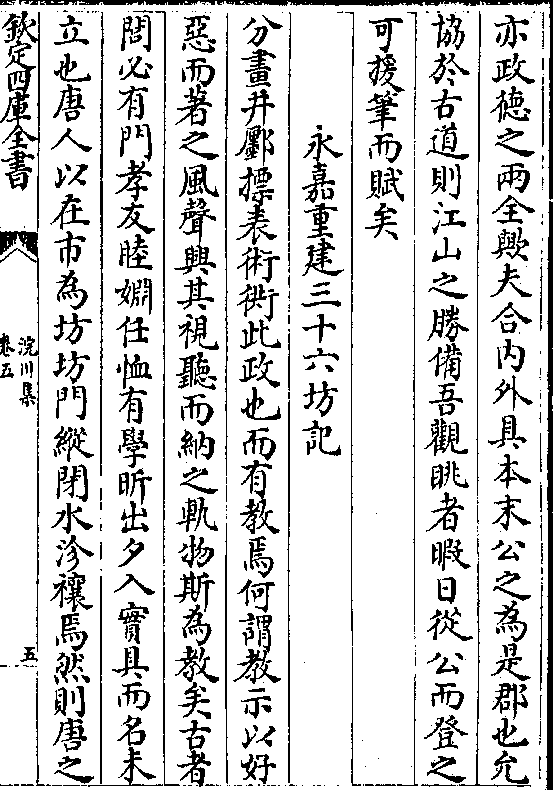 亦政徳之兩全歟夫合内外具本末公之為是郡也允
協於古道則江山之勝備吾觀眺者暇日從公而登之
可援筆而賦矣
永嘉重建三十六坊記
分畫井鄽摽表術衖此政也而有教焉何謂教示以好
惡而著之風聲興其視聽而納之軌物斯為教矣古者
閭必有門孝友睦婣任恤有學昕出夕入實具而名未
立也唐人以在市為坊坊門縱閉水沴禳焉然則唐之
欽定四庫全書
浣川集
卷五
五